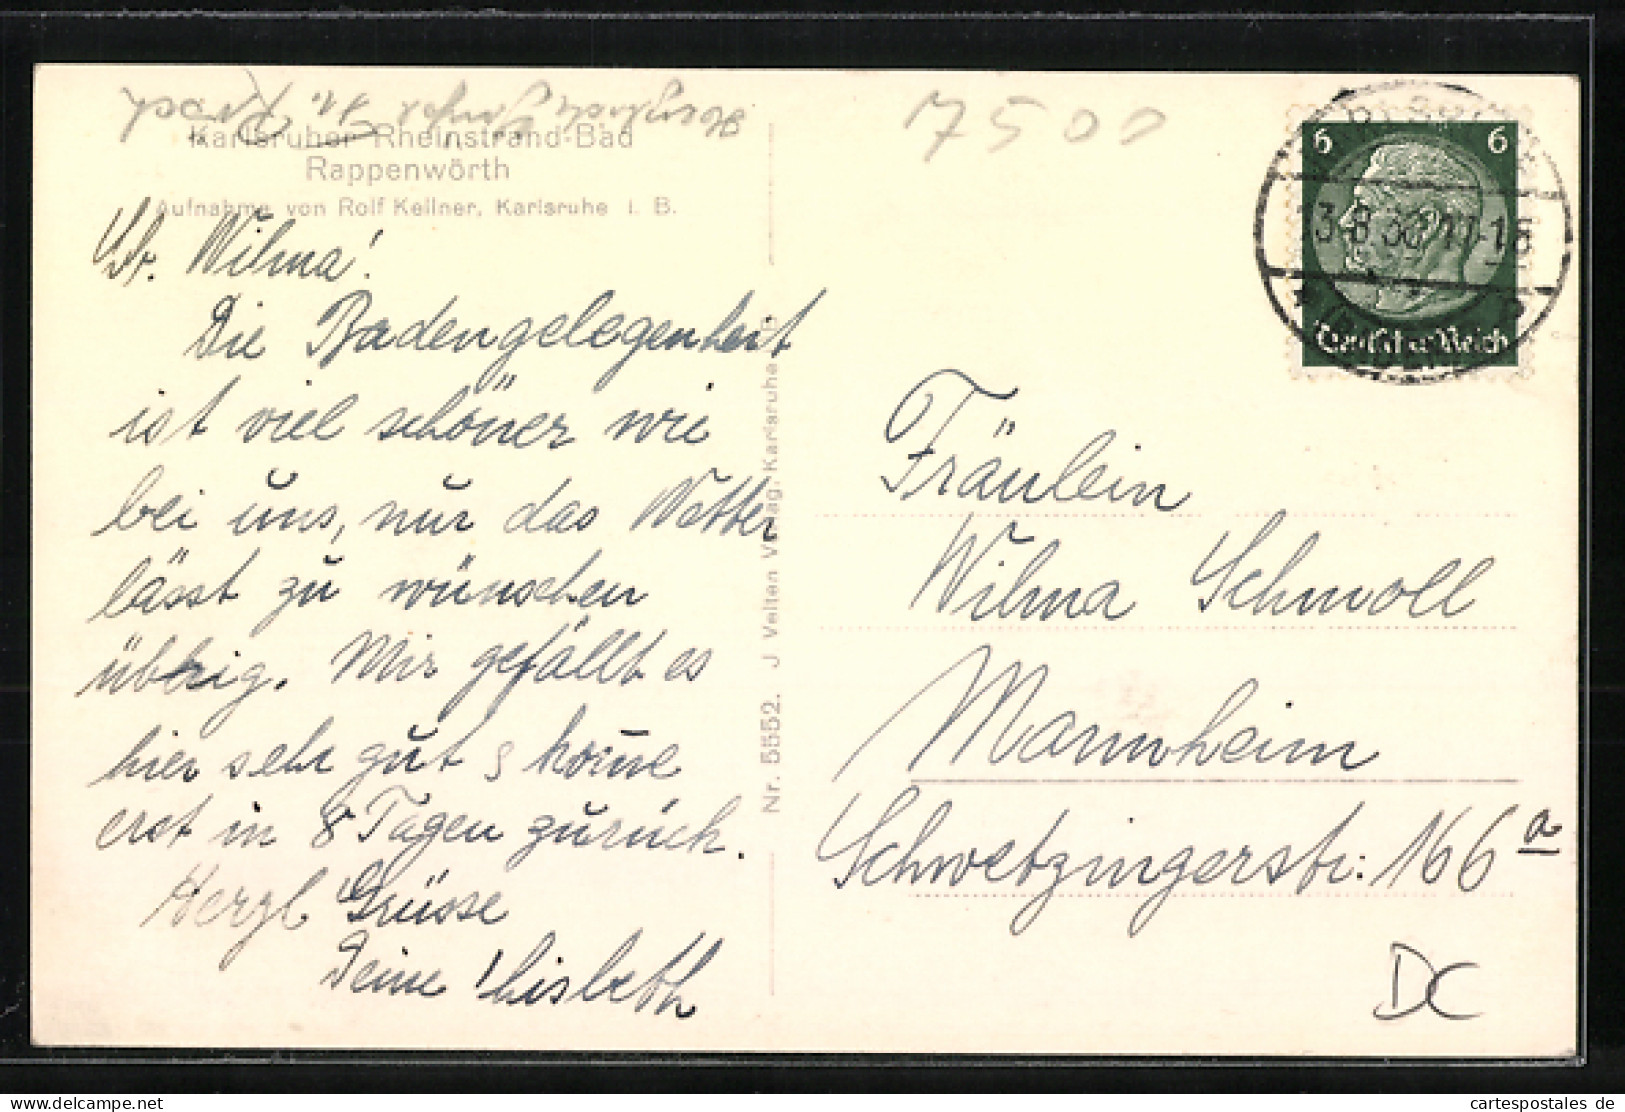 Karlsruher Rheinstrand-Bad
Rappenwörth
Aufnahme von Rolf Kellner, Karlsruhe i. B.
Lb. Wilma!
Die Badengelegenheit
ist viel schöner wie
bei uns, nur das Wetter
lässt zu wünschen
übrig. Mir gefällt es
hier sehr gut & kome
erst in 8 Tagen zurück.
Herzl Grüsse
Deine Lisbeth
Nr. 5552. J Velten Verlag, Karlsruhe i. B
7500
6 6
Deutsches Reich
Fräulein
Wilma Schmoll
Mannheim
Schwetzingerstr: 166 a
DC
www.delcampe.net
cartespostales de